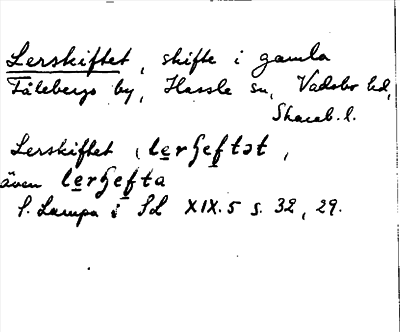 Lerskiftet, skifte i gamla
Fålebergs by, Hassle sn, Vadsbo hd,
Skarab. l.
Lerskiftet, lerʃeftət,
även lerʃefta
S. Lampa i SL XIX.5 s. 32, 29.